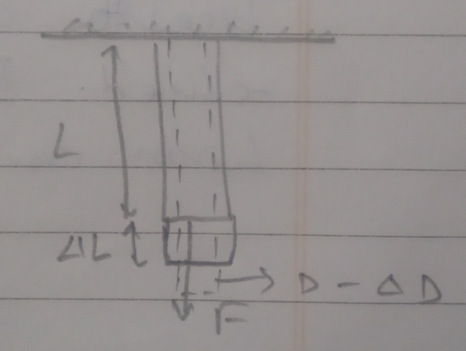 L
ΔL
D - ΔD
F